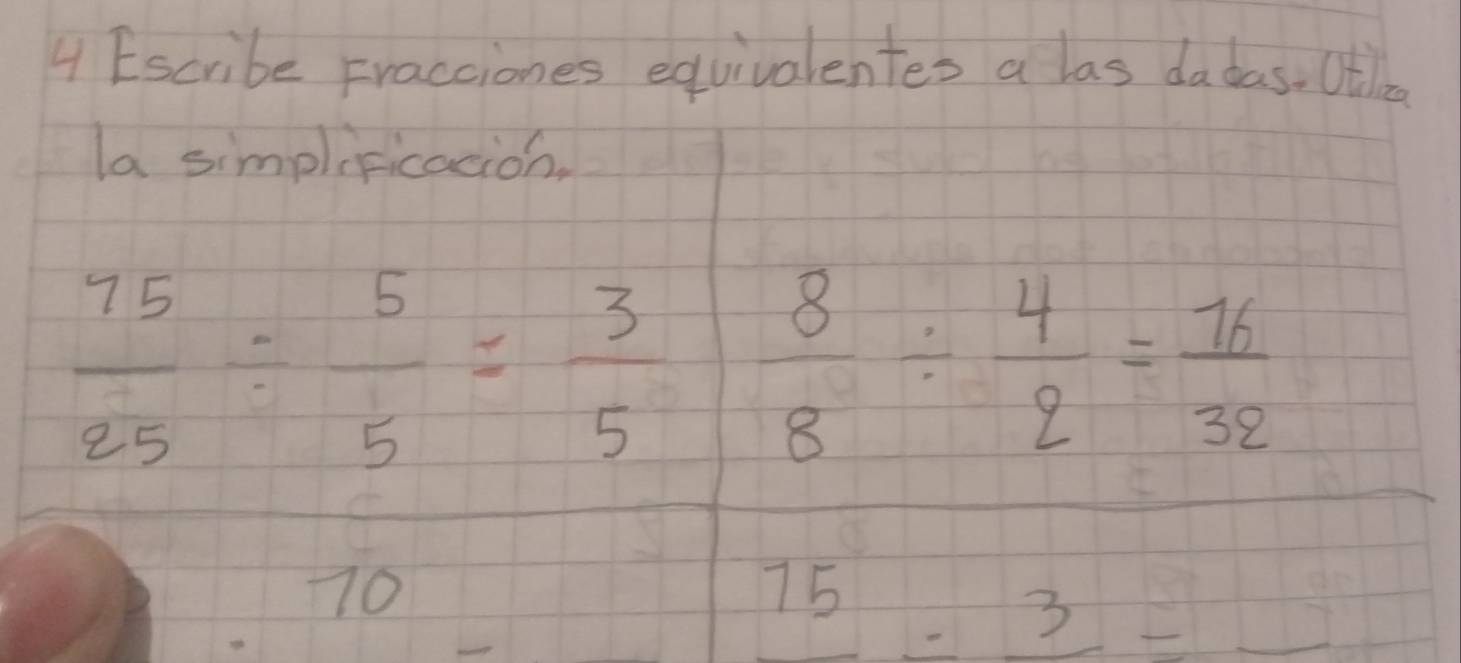 4 Escribe Fracciones equivalentes a las dadas. Utiliza
la simplificación.
15/25 ÷ 5/5 = 3/5
8/8 ÷ 4/2 = 16/32
10
15 ÷ 3 =